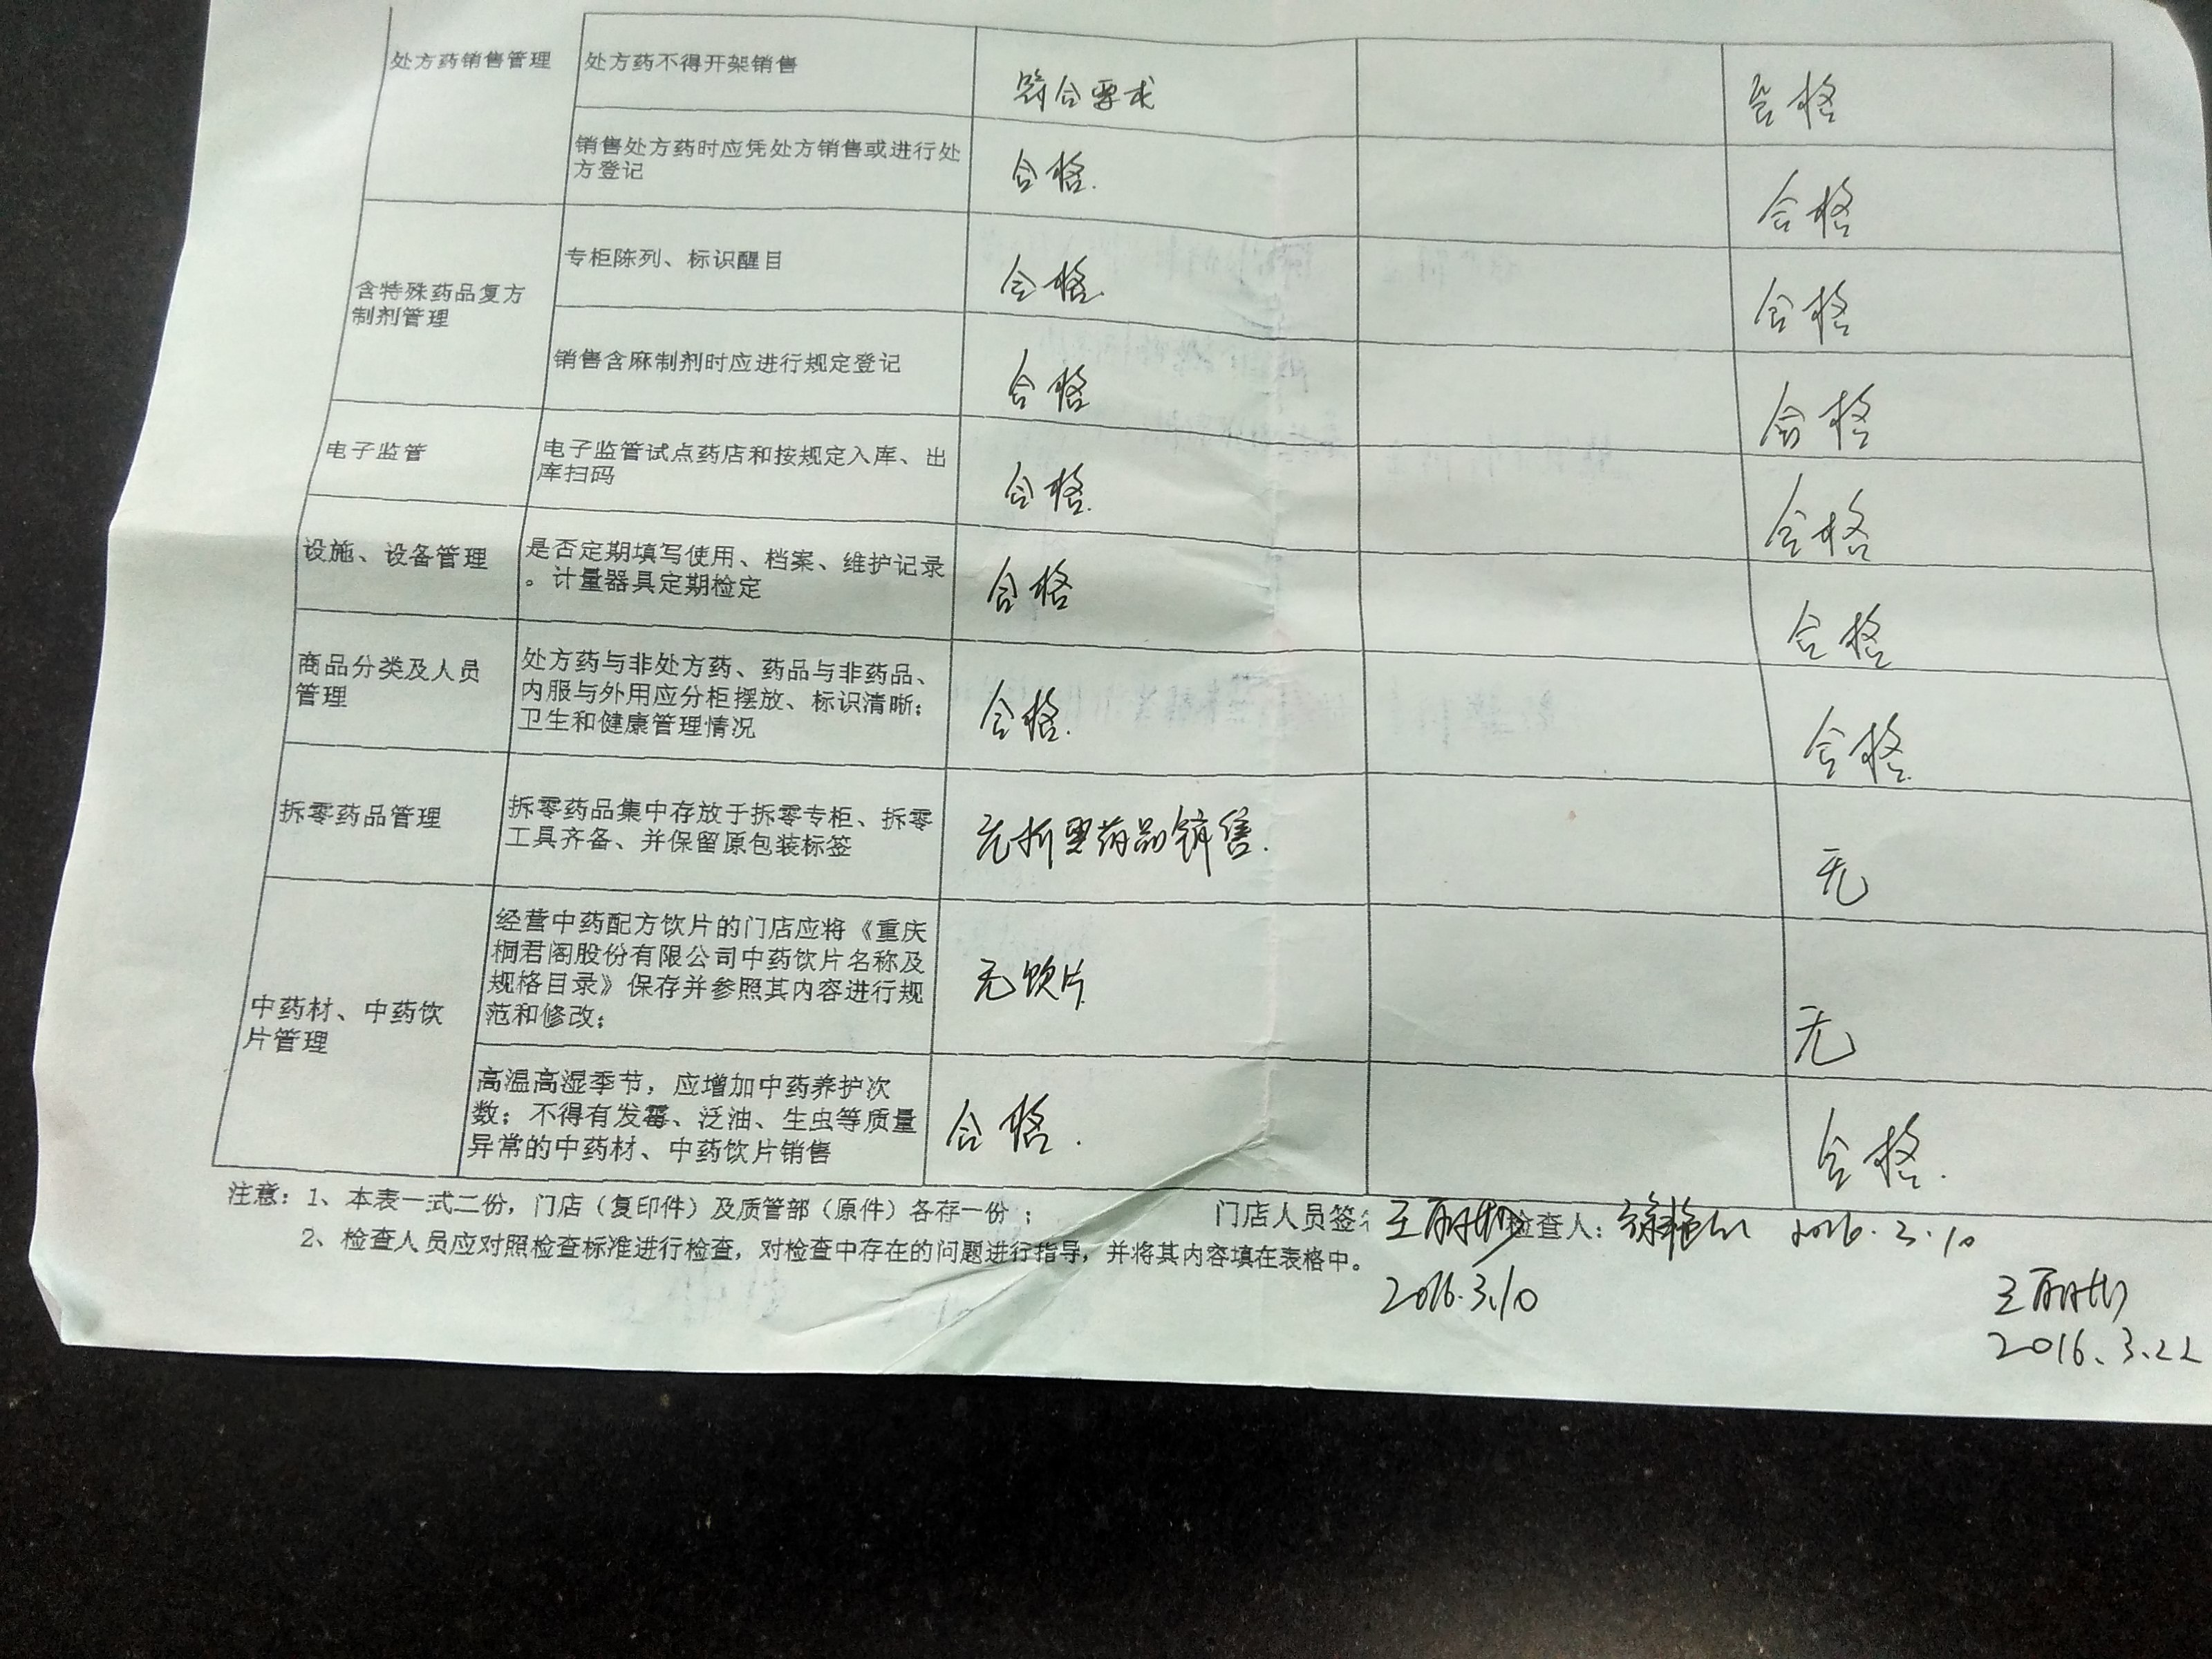 处方药销售管理
处方药不得开架销售
符合要求
合格
销售处方药时应凭处方销售或进行处
方登记
合格.
合格
含特殊药品复方
制剂管理
专柜陈列、标识醒目
合格.
合格
销售含麻制剂时应进行规定登记
合格
合格
电子监管
电子监管试点药店和按规定入库、出
库扫码
合格.
合格
设施、设备管理
是否定期填写使用、档案、维护记录
。计量器具定期检定
合格
合格
商品分类及人员
管理
处方药与非处方药、药品与非药品、
内服与外用应分柜摆放、标识清晰；
卫生和健康管理情况
合格.
合格.
拆零药品管理
拆零药品集中存放于拆零专柜、拆零
工具齐备、并保留原包装标签
无拆零药品销售.
无
中药材、中药饮
片管理
经营中药配方饮片的门店应将《重庆
桐君阁股份有限公司中药饮片名称及
规格目录》保存并参照其内容进行规
范和修改；
无饮片
无
高温高湿季节，应增加中药养护次
数；不得有发霉、泛油、生虫等质量
异常的中药材、中药饮片销售
合格.
合格.
注意：1、本表一式二份，门店（复印件）及质管部（原件）各存一份；
门店人员签 检查人： 2016.3.10
2、检查人员应对照检查标准进行检查，对检查中存在的问题进行指导，并将其内容填在表格中。
2016.3.10
2016.3.22